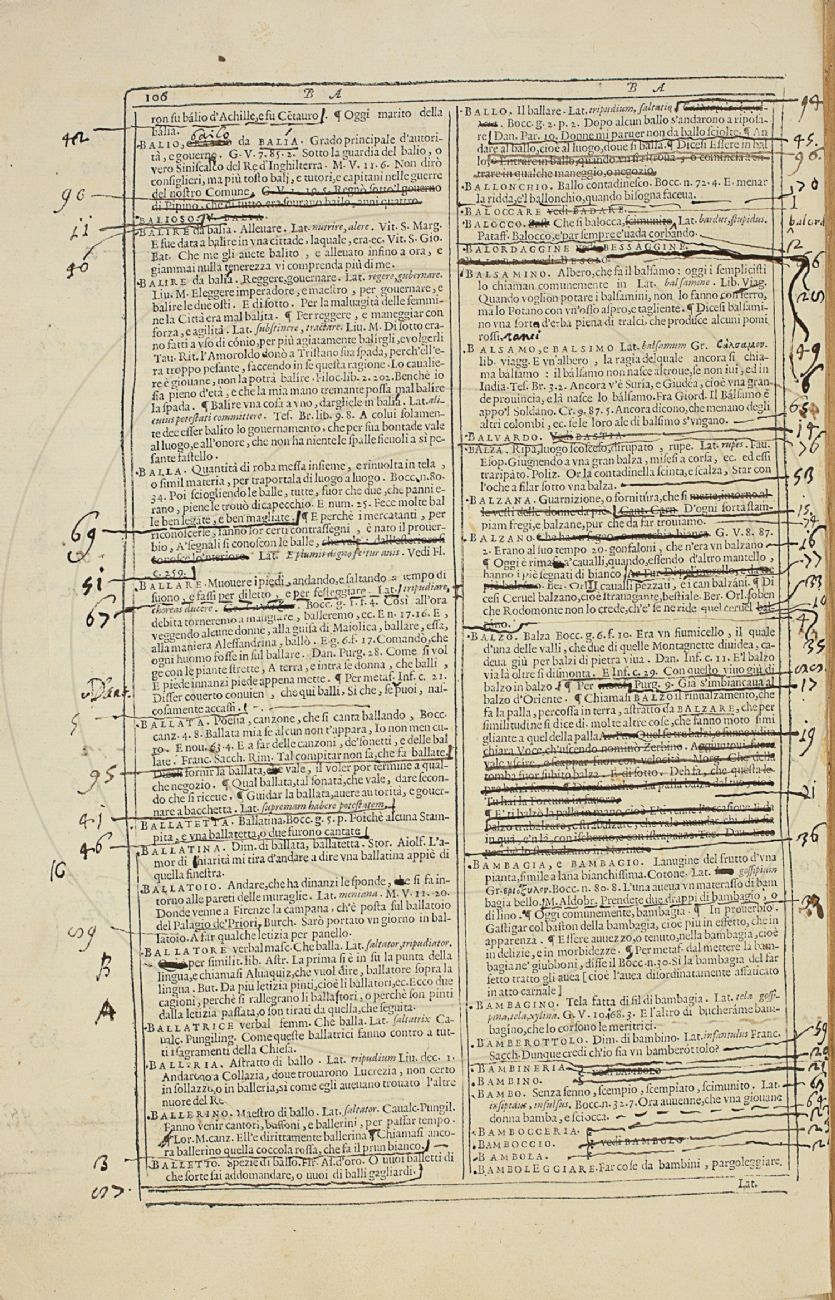 106 B A
ron su bálio d'Achille, e su Cẽtauro. ¶ Oggi marito della
bália.
BALIO, bailo da BALIA. Grado principale d'autori-
tà, e gouerno. G. V. 7. 85. 2. Sotto la guardia del balio, o
vero Siniscalco del Re d'Inghilterra. M. V. 11. 6. Non dirò
consiglieri, ma più tosto balj, e tutori, e capitani nelle guerre
del nostro Comune, G. V. 2. 10. 5. Regnò sotto 'l gouerno
di Pipino, che di tutto era sourano bailo, anni quattro.
BALIOSO, V. BALIA.
BALIRE da bália. Alleuare. Lat. nutrire, alere. Vit. S. Marg.
E sue data a balire in vna cittade. laquale, era. ec. Vit. S. Gio.
Bat. Che me gli auete balito, e alleuato infino a ora, e
giammai nulla tenerezza vi comprenda più di me.
BALIRE da balía. Reggere, gouernare. Lat. regere, gubernare.
Liu. M. Eleggere imperadore, e maestro, per gouernare, e
balire le due osti. E di sotto. Per la maluagità delle femmi-
ne la Città era mal balita. ¶ Per reggere, e maneggiar con
forza, e agilità. Lat. substinere, tractare. Liu. M. Di sotto era-
no fatti a vso di cónio, per più agiatamente balirgli, e volgerli
Tau. Rit. l'Amoroldo donò a Tristano sua spada, perch'ell'e-
ra troppo pesante, faccendo in se questa ragione. Lo caualie-
re è giouane, non la potrà balire. Filoc. lib. 2. 202. Benchè io
sia pieno d'età, e che la mia mano tremante possa mal balire
la spada. ¶ Balire vna cosa a vno, dargliele in balìa. Lat. ali-
cuius potestati committere. Tes. Br. lib. 9. 8. A colui solamen-
te dee esser balito lo gouernamento, che per sua bontade vale
al luogo, e all'onore, che non ha niente le spalle sienoli a si pe-
sante fastello.
BALLA. Quantità di roba messa insieme, e rinuolta in tela,
o simil materia, per traportala di luogo a luogo. Bocc. n. 80.
34. Poi sciogliendo le balle, tutte, fuor che due, che panni e-
rano, piene le trouò di capecchio. E num. 25. Fece molte bal
le ben legate, e ben magliate. ¶ E perchè i mercatanti, per
riconoscerle, fanno lor certi contrassegni, è nato il prouer-
bio, A' segnali si conoscon le balle, che vale: dall'esteriore si
conosce lo'nteriore. Lat. E plumis dignoscitur auis. Vedi Fl.
c. 259.
BALLARE. Muouere i piedi, andando, e saltando a tempo di
suono, e fassi per diletto, e per festeggiare. Lat. tripudiare,
choreas ducere. Bocc. g. 1. f. 4. Così all'ora
debita torneremo a mangiare, balleremo, ec. E n. 17. 16. E,
veggendo alcune donne, alla guisa di Maiolica, ballare, essa,
alla maniera Alessandrina, ballò. E g. 6. f. 17. Comandò, che
ogni huomo fosse in sul ballare. Dan. Purg. 28. Come si vol
ge con le piante strette, A terra, e intra se donna, che balli,
E piede innanzi piede appena mette. ¶ Per metaf. Inf. c. 21.
Disser couerto conuien, che qui balli, Sì che, se puoi, nas-
cosamente accaffi.
BALLATA. Poesia, canzone, che si canta ballando, Bocc.
canz. 4. 8. Ballata mia se alcun non t'appara, Io non men cu-
ro. E nou. 63. 4. E a far delle canzoni, de' sonetti, e delle bal
late. Franc. Sacch. Rim. Tal compitar non sa, che fa ballate.
fornir la ballata, vale, il voler por termine a qual-
che negozio. ¶ Qual ballata, tal sonata, che vale, dare secon-
do che si riceue. ¶ Guidar la ballata, auere autorità, e gouer-
nare a bacchetta. Lat. supremam habere potestatem.
BALLATETTA. Ballatina. Bocc. g. 5. p. Poichè alcuna Stam-
pita, e vna ballatetta, o due furono cantate
BALLATINA. Dim. di ballata, ballatetta. Stor. Aiolf. L'a-
mor di chiarità mi tira d'andare a dire vna ballatina appiè di
quella finestra.
BALLATOIO. Andare, che ha dinanzi le sponde, e si fa in-
torno alle pareti delle muraglie. Lat. meniana. M. V. 11. 20.
Donde venne a Firenze la campana, ch'è posta sul ballatoio
del Palagio de' Priori. Burch. Sarò portato vn giorno in bal-
latoio, A far qualche letizia per panello.
BALLATORE verbal masc. Che balla. Lat. saltator, tripudiator.
per similit. lib. Astr. La prima si è in su la punta della
lingua, e chiamasi Aluaquiz, che vuol dire, ballatore sopra la
lingua. But. Da più letizia pinti, cioè li ballatori, ec. Ecco due
cagioni, perchè si rallegrano li ballatori, o perchè son pinti
dalla letizia passata, o son tirati da quella, che seguita.
BALLATRICE verbal femm. Che balla. Lat. saltatrix Ca-
ualc. Pungiling. Come queste ballatrici fanno contro a tut-
ti i sagramenti della Chiesa.
BALLERIA. Astratto di ballo. Lat. tripudium Liu. dec. 1.
Andarono a Collazia, doue trouarono Lucrezia, non certo
in sollazzo, o in balleria, si come egli aueuano trouato l'altre
nuore del Re.
BALLERINO. Maestro di ballo. Lat. saltator. Caualc. Pungil.
Fanno venir cantori, buffoni, e ballerini, per passar tempo.
Lor. M. canz. Ell'è dirittamente ballerina ¶ Chiamasi anco-
ra ballerino quella coccola rossa, che fa il prun bianco.
BALLETTO. Spezie di ballo. Fir. As. d'oro. O nuoi balletti di
che sorte sai addomandare, o nuoi di balli gagliardi.
42
90
11
40
69
51
67
5
95
41
46
16
59
B
A
B
B A
BALLO. Il ballare. Lat. tripudium, saltatio
Bocc. g. 2. p. 2. Dopo alcun ballo s'andarono a riposa-
re. Dan. Par. 10. Donne mi paruer non da ballo sciolte. ¶ An
dare al ballo, cioè al luogo, doue si balla. ¶ Dicesi Essere in bal
lo, Entrare in ballo, quando vn si truoua, o comincia a en-
trare in qualche maneggio, o negozio.
BALLONCHIO. Ballo contadinesco. Bocc. n. 72. 4. E menar
la ridda, e'l ballonchio, quando bisogna faceua.
BALOCCARE vedi BADARE.
BALOCCO. Che si balocca, scimunito, Lat. bardus, stupidus.
Pataff. Balocco, e' par sempre e' uada corbando.
BALORDAGGINE vedi BESSAGGINE.
BALSAMINO. Albero, che fa il balsamo: oggi i semplicisti
lo chiaman comunemente in Lat. balsamine. Lib. Viag.
Quando voglion potare i balsamini, non lo fanno con ferro,
ma lo Potano con vn'osso aspro, e tagliente. ¶ Dicesi balsami-
no vna sorta d'erba piena di tralci, che produce alcuni pomi
rossi.
BALSAMO, e BALSIMO Lat. balsamum Gr. βάλσαμον.
lib. viagg. E vn'albero, la ragia del quale ancora si chia-
ma balsamo: il balsamo non nasce altroue, se non iui, ed in
India. Tes. Br. 3. 2. Ancora v'è Suria, e Giudea, cioè vna gran
de prouincia, e là nasce lo bálsamo. Fra Giord. Il Bálsamo è
appo'l Soldano. Cr. 9. 87. 5. Ancora dicono, che menano degli
altri colombi, ec. se le loro ale di balsimo s'vngano.
BALVARDO. Vedi BASTIA.
BALZA. Ripa, luogo scosceso, dirupato, rupe. Lat. rupes. Fau.
Esop. Giugnendo a vna gran balza, misesi a corsa, ec. ed essi
traripato. Poliz. Or la contadinella scinta, e scalza, Star con
l'oche a filar sotto vna balza.
BALZANA. Guarnizione, o fornitura, che si mette, intorno al-
le vesti delle donne da piè. Cant. Carn. D'ogni sorta stam-
piam fregi, e balzane, pur che da far trouiamo.
BALZANO. Che ha vn segno, o macchia bianca. G. V. 8. 87.
2. Erano al suo tempo 20. gonfaloni, che n'era vn balzano
¶ Oggi è rimaso a'caualli, quando, essendo d'altro mantello,
hanno i piè segnati di bianco
Ber. Orl. I caualli pezzati, e i can balzáni. ¶ Di
cesi Ceruel balzano, cioè strauagante, bestiale. Ber. Orl. so ben
che Rodomonte non lo crede, ch'e' se ne ride quel ceruel bal
zano.
BALZO. Balza Bocc. g. 6. f. 10. Era vn fiumicello, il quale
d'una delle valli, che due di quelle Montagnette diuidea, ca-
deua giù per balzi di pietra viua. Dan. Inf. c. 11. E'l balzo
via là oltre si dismonta. E Inf. c. 29. Con questo viuo giù di
balzo in balzo. ¶ Per Purg. 9. Già s'imbiancaua al
balzo d'Oriente. ¶ Chiamasi BALZO il rinnalzamento, che
fa la palla, percossa in terra, astratto da BALZARE, che per
similitudine si dice di molte altre cose, che fanno moto simi
gliante a quel della palla
chiara Voce, ch'uscendo nominò Zerbino.
vale vscire, o scappar fuor con velocità. Morg. Che della
tomba fuor subito balza. E di sotto.
¶ E'l balzo la palla in mano, cioè
BAMBAGIA, e BAMBAGIO. Lanugine del frutto d'vna
pianta, simile a lana bianchissima. Cotone. Lat. gossipium
Gr. ἐριόξυλον. Bocc. n. 80. 8. L'una aueua vn materasso di bam
bagia bello. M. Aldobr. Prendete due drappi di bambagio, o
di lino. ¶ Oggi comunemente, bambagia. ¶ In prouerbio
Gastigar col baston della bambagia, cioè più in effetto, che in
apparenza. ¶ Essere auuezzo, o tenuto, nella bambagia, cioè
in delizie, e in morbidezze. ¶ Per metaf. dal mettere la bam-
bagia ne' giubboni, disse il Bocc. n. 30. Sì la bambagia del far
setto tratto gli auea [cioè l'auea disordinatamente affaticato
in atto carnale]
BAMBAGINO. Tela fatta di fil di bambagia. Lat. tela gossi-
pina, tela, xylina. G. V. 10. 168. 3. E l'altro di bucheráme bam-
bagino, che lo corsono le meritrici.
BAMBEROTTOLO. Dim. di bambino. Lat. infantulus Franc.
Sacch. Dunque credi ch'io sia vn bamberòttolo?
BAMBINERIA
BAMBINO. vedi BAMBOLO
BAMBO. Senza senno, scempio, scempiato, scimunito. Lat.
insipidus, insulsus. Bocc. n. 32. 7. Ora auuenne, che vna giouane
donna bamba, e sciocca.
BAMBOCCERIA.
BAMBOCCIO. vedi BAMBOLO
BAMBOLA.
BAMBOLEGGIARE. Far cose da bambini, pargoleggiare.
Lat.
94
45
96
balord
12
49
6
65
14
76
53
15
16
77
33
10
47
35
17
19
21
36
39
59
63
64